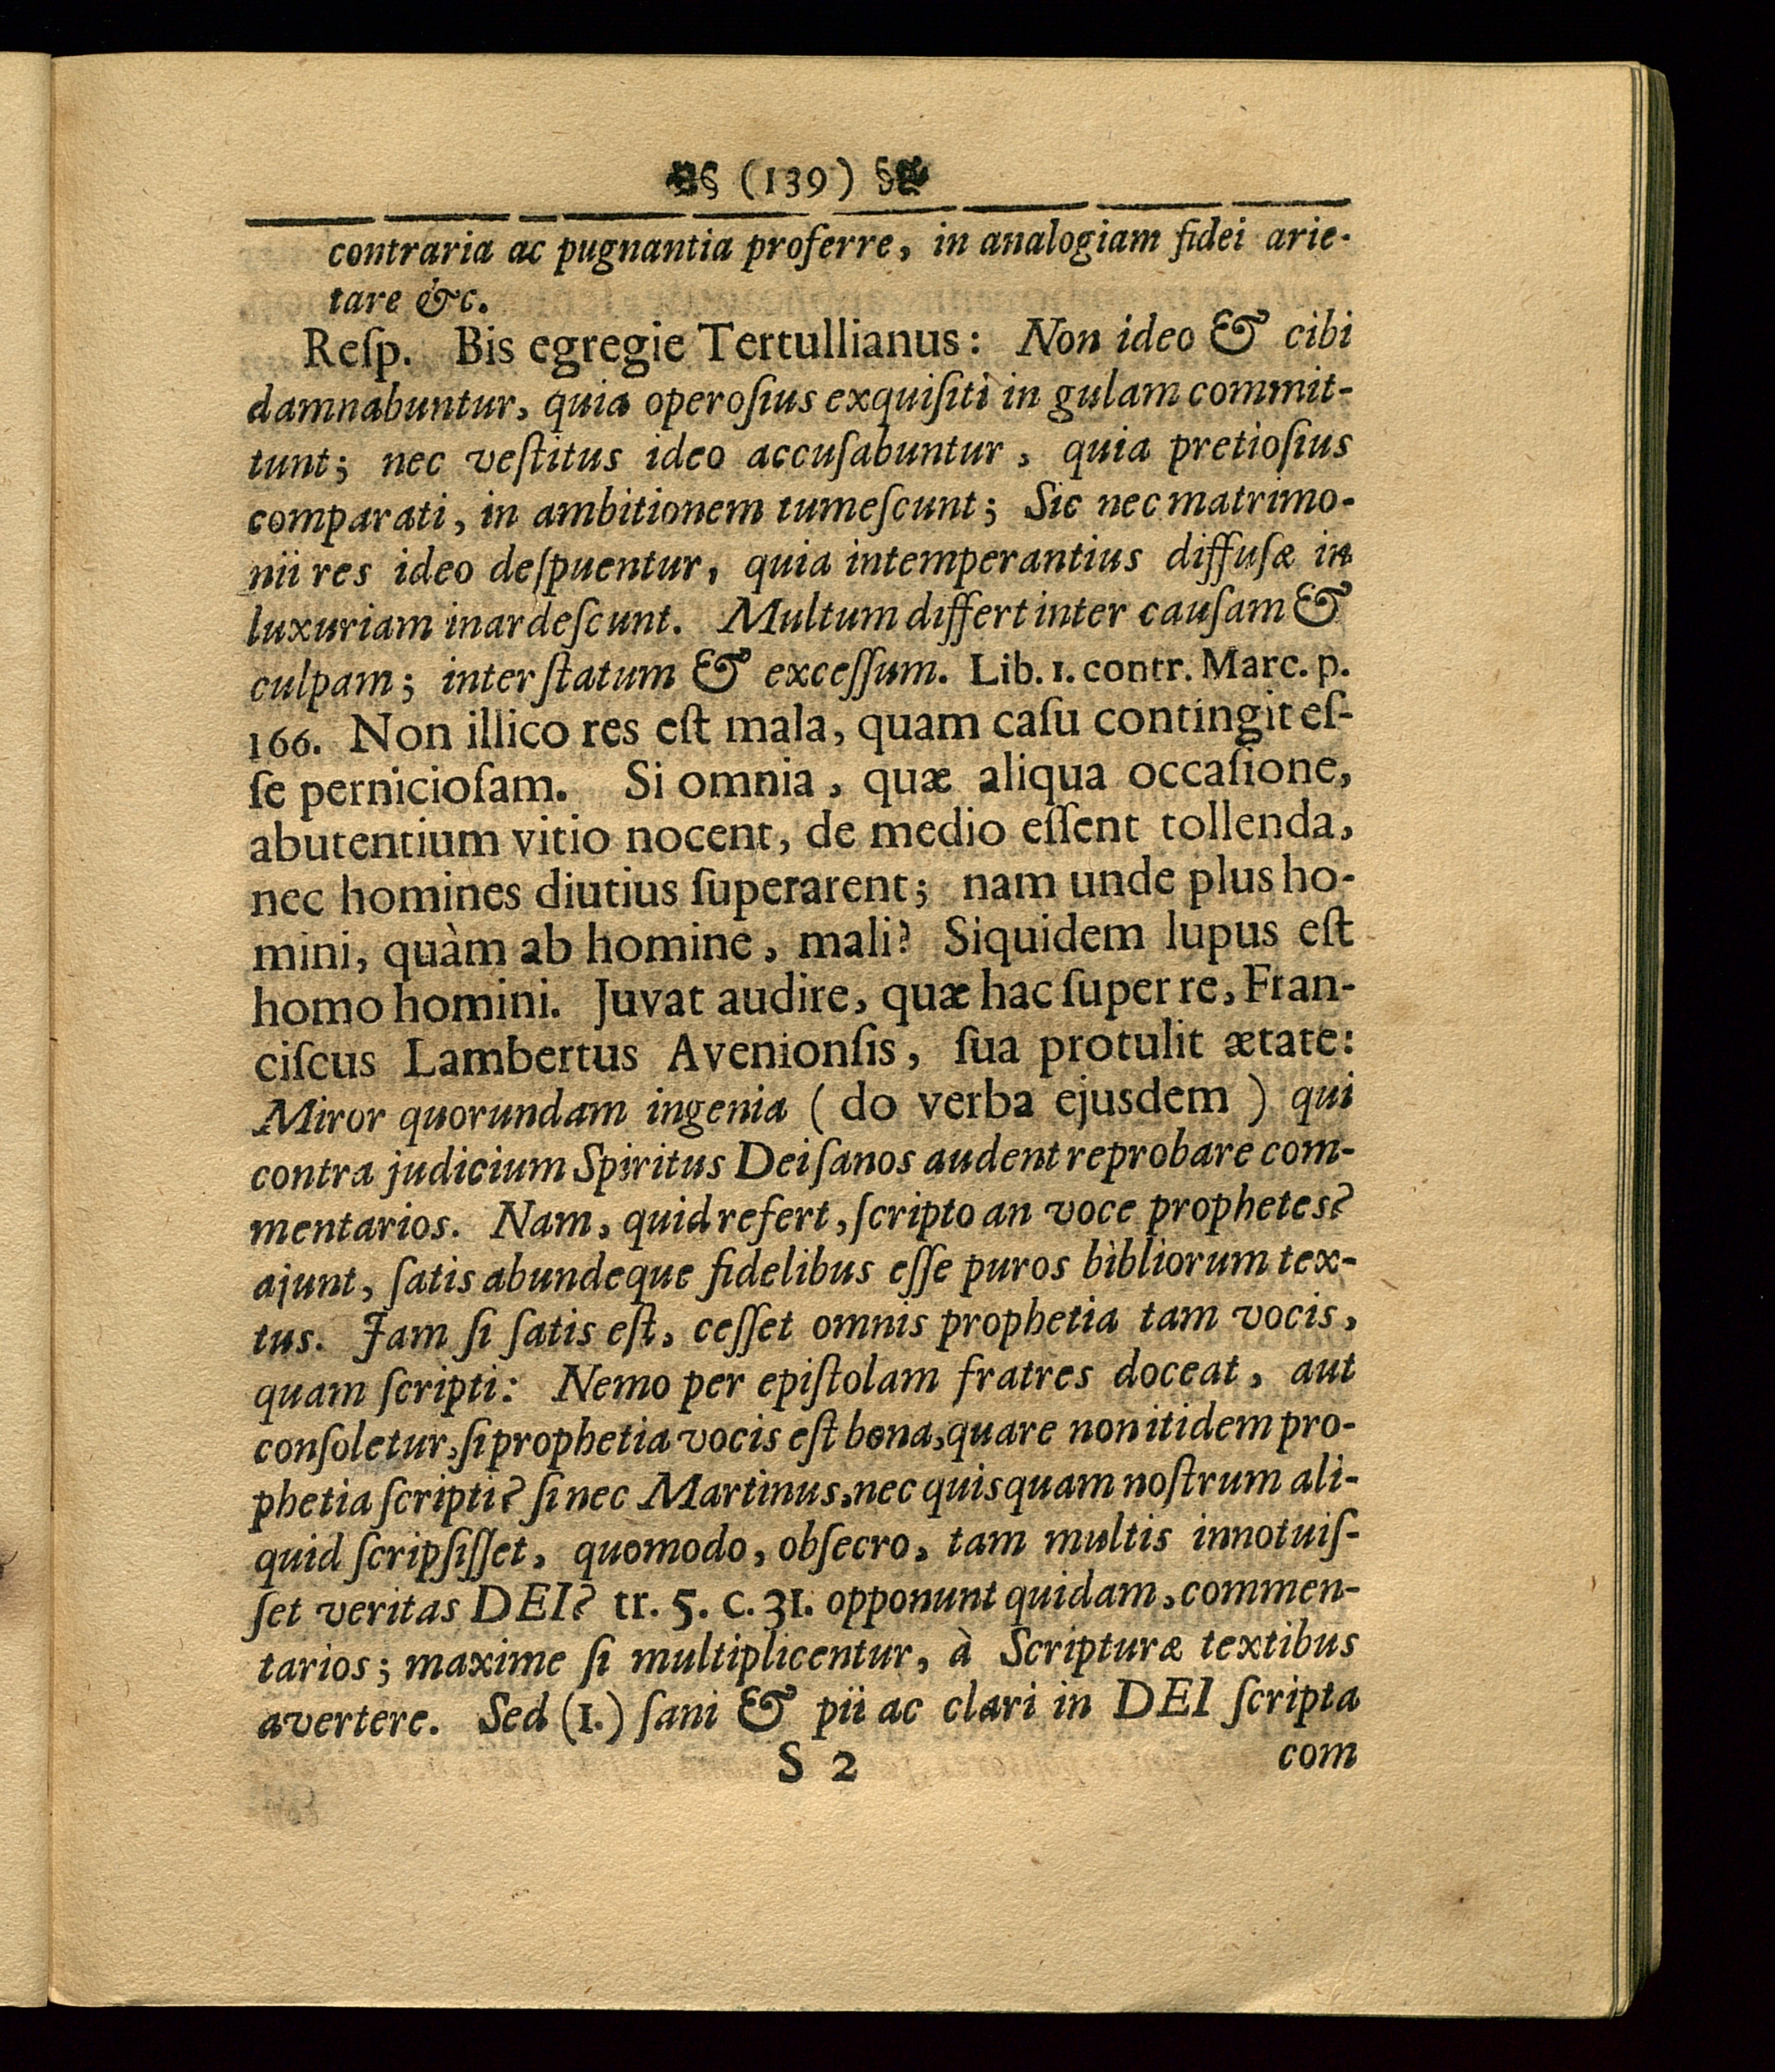 (139)
contraria ac pugnantia proferre, in analogiam fidei arie-
tare &c.
Reſp. Bis egregie Tertullianus: Non ideo & cibi
damnabuntur, quia operoſius exquiſiti in gulam commit-
tunt; nec veſtitus ideo accuſabuntur, quia pretioſius
comparati, in ambitionem tumeſcunt; Sic nec matrimo-
nii res ideo deſpuentur, quia intemperantius diffuſæ in
luxuriam inardeſcunt. Multum differt inter cauſam &
culpam; inter ſtatum & exceſſum. Lib. 1. contr. Marc. p.
166. Non illico res eſt mala, quam caſu contingit eſ-
ſe pernicioſam. Si omnia, quæ aliqua occaſione,
abutentium vitio nocent, de medio eſſent tollenda,
nec homines diutius ſuperarent; nam unde plus ho-
mini, quàm ab homine, mali? Siquidem lupus eſt
homo homini. Juvat audire, quæ hac ſuper re, Fran-
ciſcus Lambertus Avenionſis, ſua protulit ætate:
Miror quorundam ingenia (do verba ejusdem) qui
contra judicium Spiritus Dei ſanos audent reprobare com-
mentarios. Nam, quid refert, ſcripto an voce prophetes?
ajunt, ſatis abundeque fidelibus eſſe puros bibliorum tex-
tus. Jam ſi ſatis eſt, ceſſet omnis prophetia tam vocis,
quam ſcripti: Nemo per epiſtolam fratres doceat, aut
conſoletur, ſi prophetia vocis eſt bona, quare non itidem pro-
phetia ſcripti? ſi nec Martinus, nec quisquam noſtrum ali-
quid ſcripſiſſet, quomodo, obſecro, tam multis innotuiſ-
ſet veritas DEI? tr. 5. c. 31. opponunt quidam, commen-
tarios; maxime ſi multiplicentur, à Scripturæ textibus
avertere. Sed (1.) ſani & pii ac clari in DEI ſcripta
S 2 com